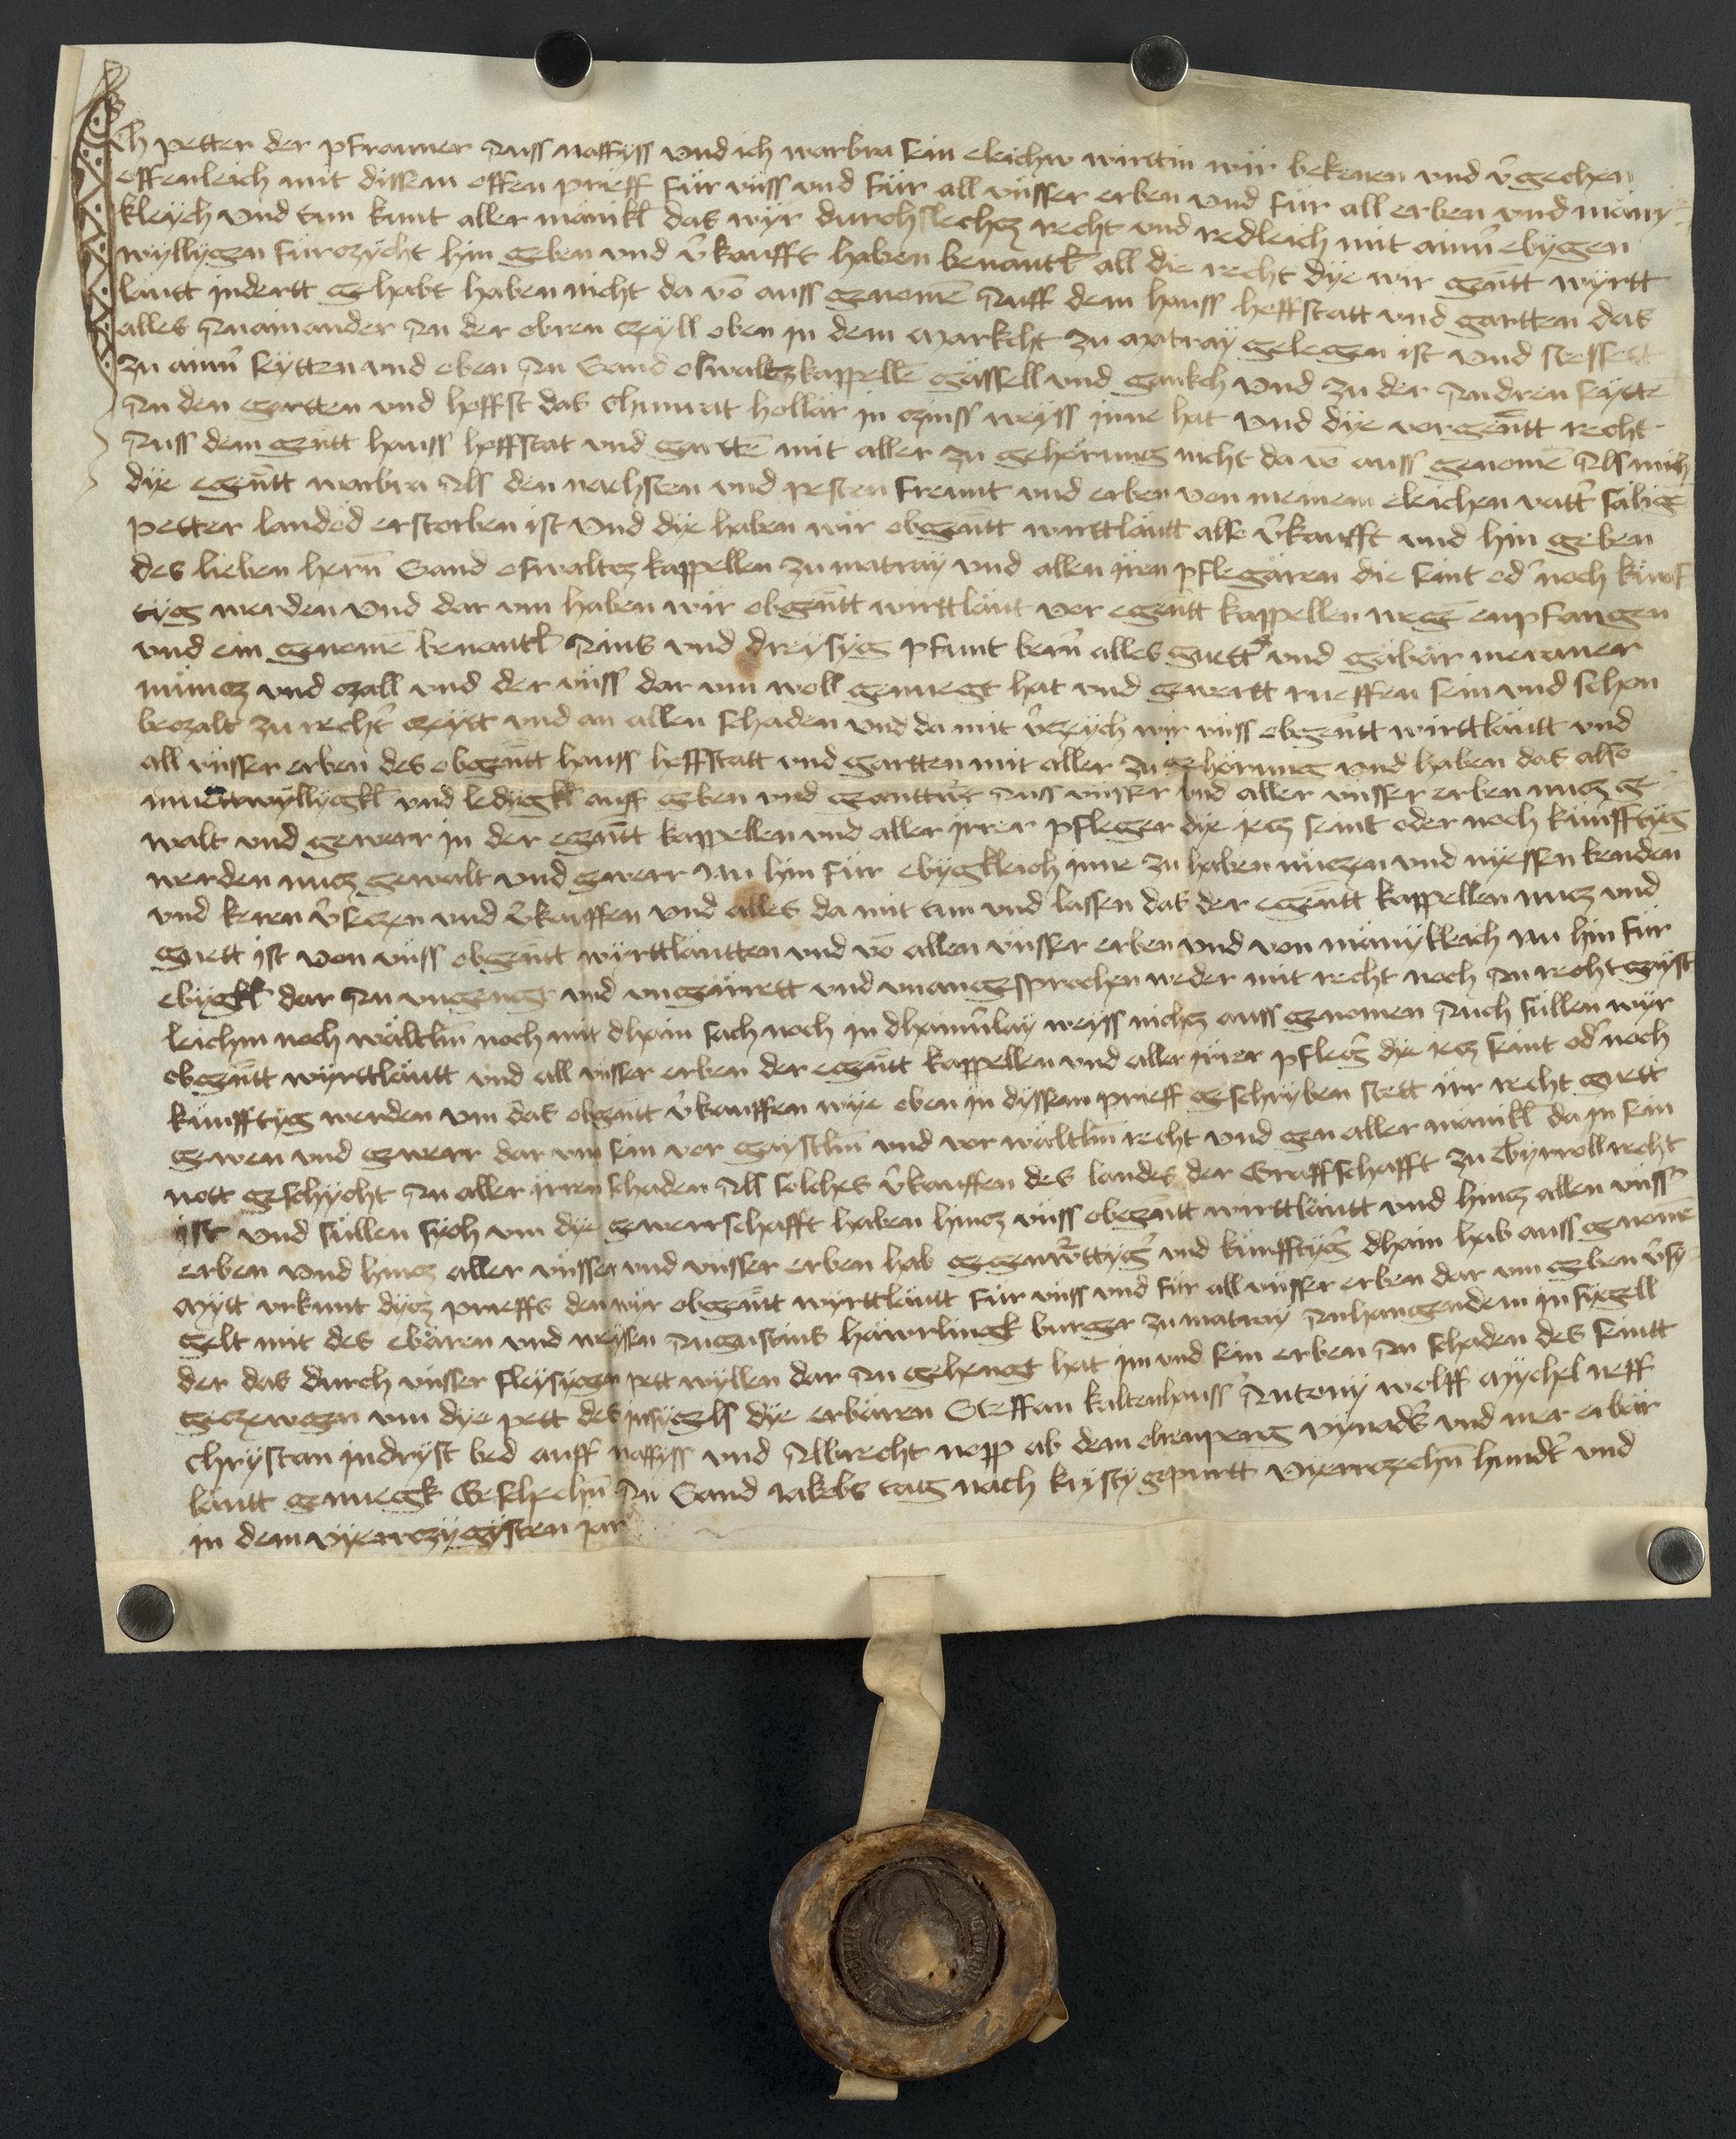 Ich petter der pfranner auss naffyss und ich warbra sein eleichew wirttin wir bekenen und v̄gechen
offenleich mit dissem offen prieff für unss und für all unsser erben und für all erben und mäny
kleych Und tun kunt aller mänikl das wyr durchslechcz recht und redleich mit aimer ebygen
wyllygen fürczycht hin geben und v̄kaufft haben benantl all die recht dye wir genant wyrtt
läutt indertt gehabt haben nicht da vō auss genomē auff dem hauss hoffstatt und gartten das
alles anainander an der obren czyll oben in dem Markcht zu Matray gelegen ist Und stossett
zu ainer seytten und oben an Sand oswaltz kappellē gässell und gankch Und zu der andren seytē
an den gartten und hoffst das chunrat hollär in czinss weyss inne hat Und dye vorgenant recht
auss dem genant hauss hoffstat und gartē mit aller zu gehörung nicht da vō auss genomē als mich
dye egenant warbra als den nachsten und pesten freunt und erben von meinem eleichen vatter sälig
petter landod erstorben ist Und dye haben wir obgenant wirttläutt also v̄kaufft und hin geben
des lieben herrn Sand oswaltcz kappellen zu matray und allen iren pflegären die seint oder noch künf
tyg werden Und dar um haben wir obgenant wirttläut vor egenant kappellen wegē enpfangen
und ein genomē benantl ains und dreysyg pfunt berner alles guetter und gäbär meraner
müncz und czall und der unss dar um woll genuegt hat und gewertt rueffen sein und schon
beczalt zu rechter czeytt und an allen schaden Und da mit v̄czeych wir unss obgenant wirttläutt und
all unsser erben des obgenant hauss hoffstatt und gartten mit aller zu gehörung und haben das also
muettwyllygkl und ledygkl auff geben und geanttwurt aus unsser und aller unsser erben nucz ge
walt und gewerr in der egenant kappellen und aller irrer pfleger dye yecz seint oder noch künfftyg
werden nucz gewalt und gewerr nu hin für ebygkleich inne zu haben nuczen und nyessen benden
und keren v̄seczen und v̄kauffen und alles da mit tun und lassen das der egenant kappellen nucz und
guett ist von unss obgenant wyrttläutten und vō allen unsser erben und von mänykleich nu hin für
ebygkl dar an ungenogt und ungäirrett und unangesprochen weder mit recht noch an recht gayst
leichm noch wältlm noch mit dhain sach noch in dhainerlay weyss nichcz auss genomen auch süllen wyr
obgenant wyrttläutt und all unsser erben der egenant kappellen und aller irrer pfleger dye yecz seint oder noch
künfftyg werden um das obgenant v̄kauffen wye oben in dyssem prieff geschryben stett irr recht guett
geweren und gewerr dar um sein vor gaystlm und vor wältlm recht Und gen aller mänikl da in sein
nott geschycht an aller irren schaden als solches v̄kauffen des landes der Graffschafft zu Tyrroll recht
ist Und süllen sych um dye gewerschafft haben hincz unss obgenant wirttläutt und hincz allen unsser
erben und hincz aller unsser und unsser erben hab gegenwürttyger und künfftyger dhain hab auss genomē
Mytt urkunt dycz prieffs den wir obgenant wyrttläutt für unss und für all unsser erben dar um geben v̄sy
gelt mit des erbären und weysen augustins häwrlingk burger zu matray anhangendem insygell
der das durch unsser fleysygen pett wyllen dar an gehengt hat im und sein erben an schaden des seintt
geczewgen um dye pett des insygells dye erbären Steffan kaltenhauss Antony wolff Mychel neff
chrystan indryst bed auff naffyss und Albrecht nopp ab dem obrenperg vynaders und mer erbär
läutt genuegk Geschechen an Sand Jakobs tag nach kristy gepurtt vyerczehen hundert und
in dem vyerczygysten jar